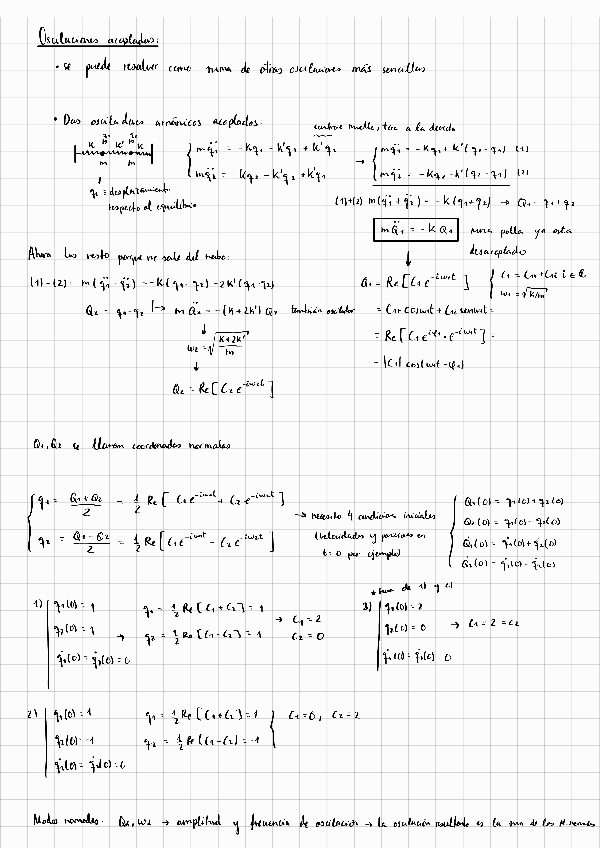 Oscilaciones acopladas:
• se puede resolver como suma de otras oscilaciones más sencillas
• Dos osciladores armónicos acoplados:
contrae muelle, tira a la derecha
K K' K
m m
q_i = desplazamiento
respecto al equilibrio
{ m q̈₁ = -Kq₁ - K'q₁ + K'q₂
{ m q̈₂ = -Kq₂ - K'q₂ + K'q₁
→ { m q̈₁ = -Kq₁ + K'(q₂ - q₁) (1)
{ m q̈₂ = -Kq₂ - K'(q₂ - q₁) (2)
(1)+(2) m(q̈₁ + q̈₂) = -K(q₁+q₂) → Q₁ = q₁+q₂
m Q̈₁ = -K Q₁ polla ya está
desacoplado
Ahora las resto porque me sale del nabo:
(1)-(2): m(q̈₁ - q̈₂) = -K(q₁ - q₂) - 2K'(q₁ - q₂)
Q₂ = q₁ - q₂ → m Q̈₂ = -(K + 2K') Q₂ también oscilador
ω₂ = √((K+2K')/m)
Q₂ = Re[C₂ e^{-iω₂t}]
Q₁ = Re[C₁ e^{-iω₁t}] { C₁ = C₁₁ + C₁₂ i ∈ ℂ
ω₁ = √(K/m)
= C₁₁ cosω₁t + C₁₂ senω₁t =
= Re[C₁ e^{iφ₁} · e^{-iω₁t}] =
= |C₁| cos(ω₁t - φ₁)
Q₁, Q₂ se llaman coordenadas normales
{ q₁ = (Q₁+Q₂)/2 = 1/2 Re[C₁ e^{-iω₁t} + C₂ e^{-iω₂t}]
{ q₂ = (Q₁-Q₂)/2 = 1/2 Re[C₁ e^{-iω₁t} - C₂ e^{-iω₂t}]
→ necesito 4 condiciones iniciales
(velocidades y posiciones en
t=0 por ejemplo)
{ Q₁(0) = q₁(0) + q₂(0)
Q₂(0) = q₁(0) - q₂(0)
Q̇₁(0) = q̇₁(0) + q̇₂(0)
Q̇₂(0) = q̇₁(0) - q̇₂(0)
1) q₁(0) = 1
q₂(0) = 1 →
q̇₁(0) = q̇₂(0) = 0
q₁ = 1/2 Re[C₁ + C₂] = 1
q₂ = 1/2 Re[C₁ - C₂] = 1
→ C₁ = 2
C₂ = 0
* suma de 1) y 2)
3) q₁(0) = 2
q₂(0) = 0 → C₁ = 2 = C₂
q̇₁(0) = q̇₂(0) = 0
2) q₁(0) = 1
q₂(0) = -1
q̇₁(0) = q̇₂(0) = 0
q₁ = 1/2 Re[C₁ + C₂] = 1
q₂ = 1/2 Re[C₁ - C₂] = -1
} C₁ = 0, C₂ = 2
Modos normales: → amplitud y frecuencia de oscilación → la oscilación resultante es la suma de los M normales